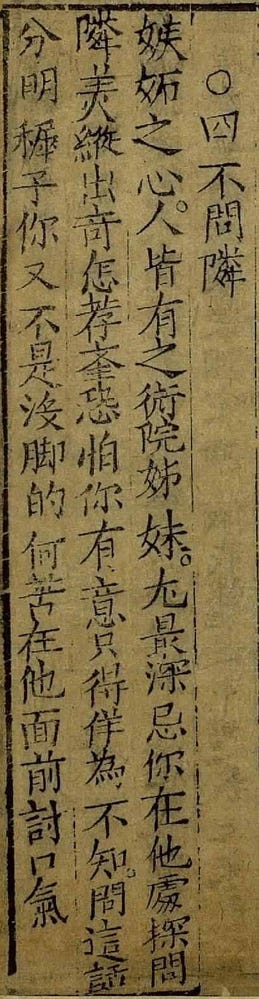 ○四不問隣
嫉妬之心。人皆有之術院姊妹。尤最深忌你在他處探問
隣美縱出奇怎荐恐怕你有意只得佯為不知。問這話
分明子你又不是沒脚的何苦在他面前討口氣